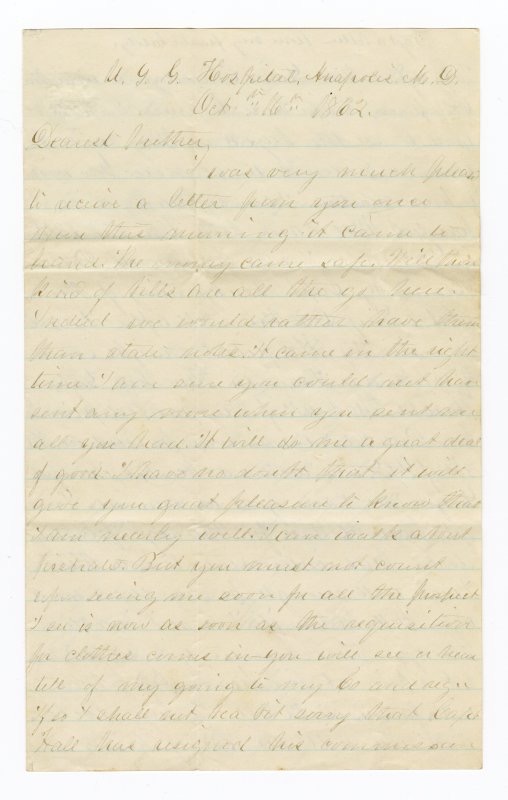 U. S. G. Hospital, Anapolis M. D.
Oct 16th 1862.
Dearest Mother,
I was very much pleas
to receive a letter from you once
more this morning it came to
hand. The money came safe. Well this
kind of bills are all the go here.
Indeed we would rather have them
than state notes. It came in the right
time. I am sure you could not have
sent any more when you sent me
all you had. It will do me a great deal
of good. I have no doubt that it will
give you great pleasure to know that
I am nearly well. I can walk about
firstrate. But you must not count
upon seeing me soon for all the prospect
I see is now as soon as the requisition
for clothes comes in you will see or hear
tell of my going to my Co and
if so I shall not be a bit sorry that Capt
Hall has resigned his commission